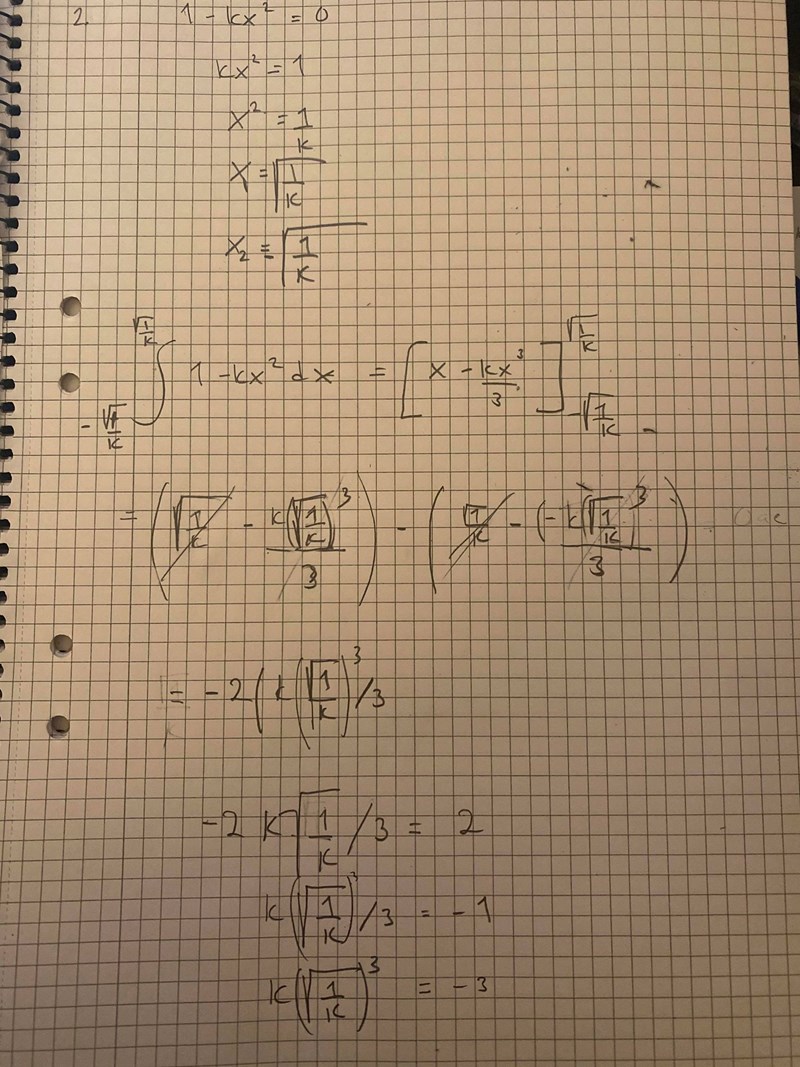 2. 1 - kx² = 0
kx² = 1
x² = 1/k
x = √(1/k)
x₂ = √(1/k)
∫_{-√(1/k)}^{√(1/k)} 1 - kx² dx = [x - kx³/3]_{-√(1/k)}^{√(1/k)}
= (√(1/k) - k(√(1/k))³/3) - (√(1/k) - (-k(√(1/k))³/3)
= -2(k(√(1/k))³/3
-2k√(1/k)/3 = 2
k(√(1/k))³/3 = -1
k(√(1/k))³ = -3